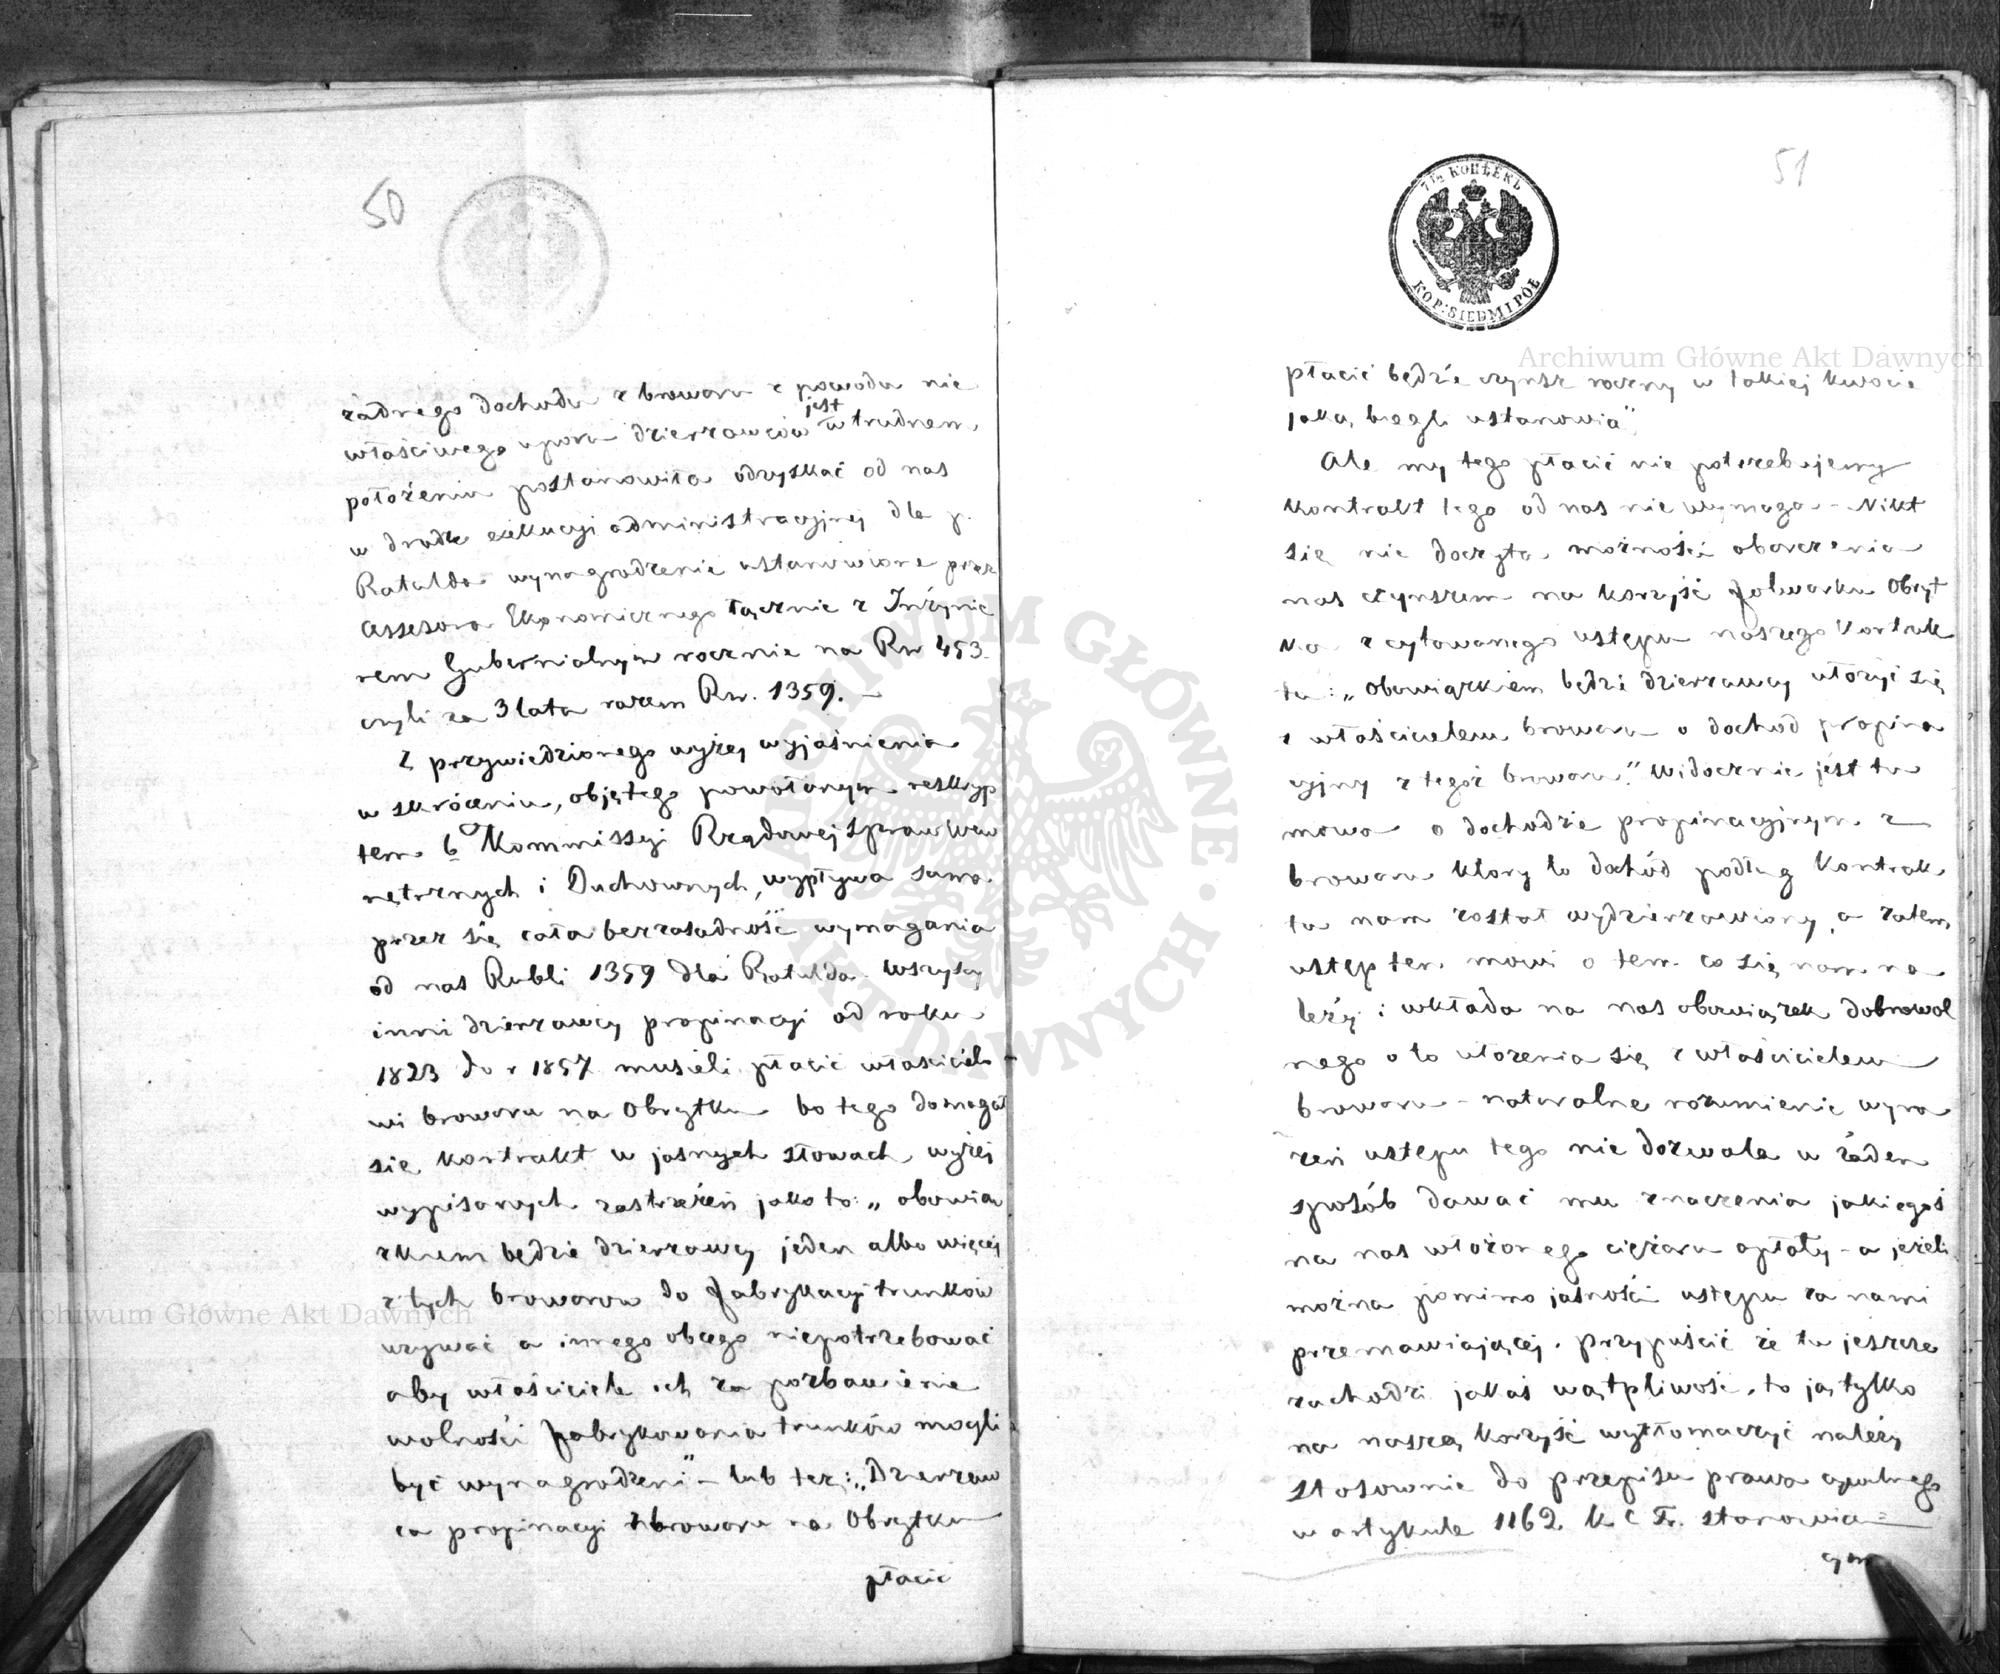 50
żadnego dochodu z browaru z powodu nie
właściwego uporu dzierżawców jest w trudnem
położeniu postanowiła odzyskać od nas
w drodze exekucyi administracyjnej dla p.
Ratulda wynagrodzenie ustanowione przez
Assesora Ekonomicznego łącznie z Inżynie
rem Gubernialnym rocznie na Rsr 453
czyli za 3 lata razem Rsr. 1359. –
Z przywiedzionego wyżej wyjaśnienia
w skróceniu, objętego powołanym reskryp
tem Kommissyi Rządowej Spraw Wew
nętrznych i Duchownych, wypływa samo
przez się cała bezzasadność wymagania
od nas Rubli 1359 dla Ratulda. Wszyscy
inni dzierżawcy propinacyi od roku
1823 do r 1857 musieli płacić właściciele
wi browaru na Obrytku bo tego domagał
się kontrakt w jasnych słowach wyżej
wypisanych zastrzeżeń jako to: „obowią
zkiem będzie dzierżawcy jeden albo więcej
z tych browarów do fabrykacyi trunków
używać a innego obcego niepotrzebować
aby właściciele ich za pozbawienie
wolności fabrykowania trunków mogli
być wynagrodzeni" – lub też: „Dzierżaw
ca propinacyi z browaru na Obrytku
płacić
51
7½ КОПѢЕКЪ
KOP: SIEDM I PÓŁ
płacić będzie czynsz roczny w takiej kwocie
jaką biegli ustanowią"
Ale my tego płacić nie potrzebujemy
kontrakt tego od nas nie wymaga – Nikt
się nie doczyta możności obarczenia
nas czynszem na korzyść folwarku Obryt
ka z cytowanego ustępu naszego kontrak
tu: „Obowiązkiem będzie dzierżawcy ułożyć się
z właścicielem browaru o dochód propina
cyjny z tegoż browaru". Widocznie jest tu
mowa o dochodzie propinacyjnym z
browaru który to dochód podług kontrak
tu nam został wydzierżawiony, a zatem
ustęp ten mówi o tem co się nam na
leży i wkłada na nas obowiązek dobrowol
nego o to ułożenia się z właścicielem
browaru – naturalne rozumienie wyra
żeń ustępu tego nie dozwala w żaden
sposób dawać mu znaczenia jakiegoś
na nas włożonego ciężaru opłaty – a jeżeli
można pomimo jasności ustępu za nami
przemawiającej, przypuścić że tu jeszcze
zachodzi jakaś wątpliwość, to ją tylko
na naszą korzyść wytłomaczyć należy
stosownie do przepisu prawa cywilnego
w artykule 1162. K. C. Fr. stanowią=
cym
Archiwum Główne Akt Dawnych
Archiwum Główne Akt Dawnych
ARCHIWUM GŁÓWNE · AKT DAWNYCH ·